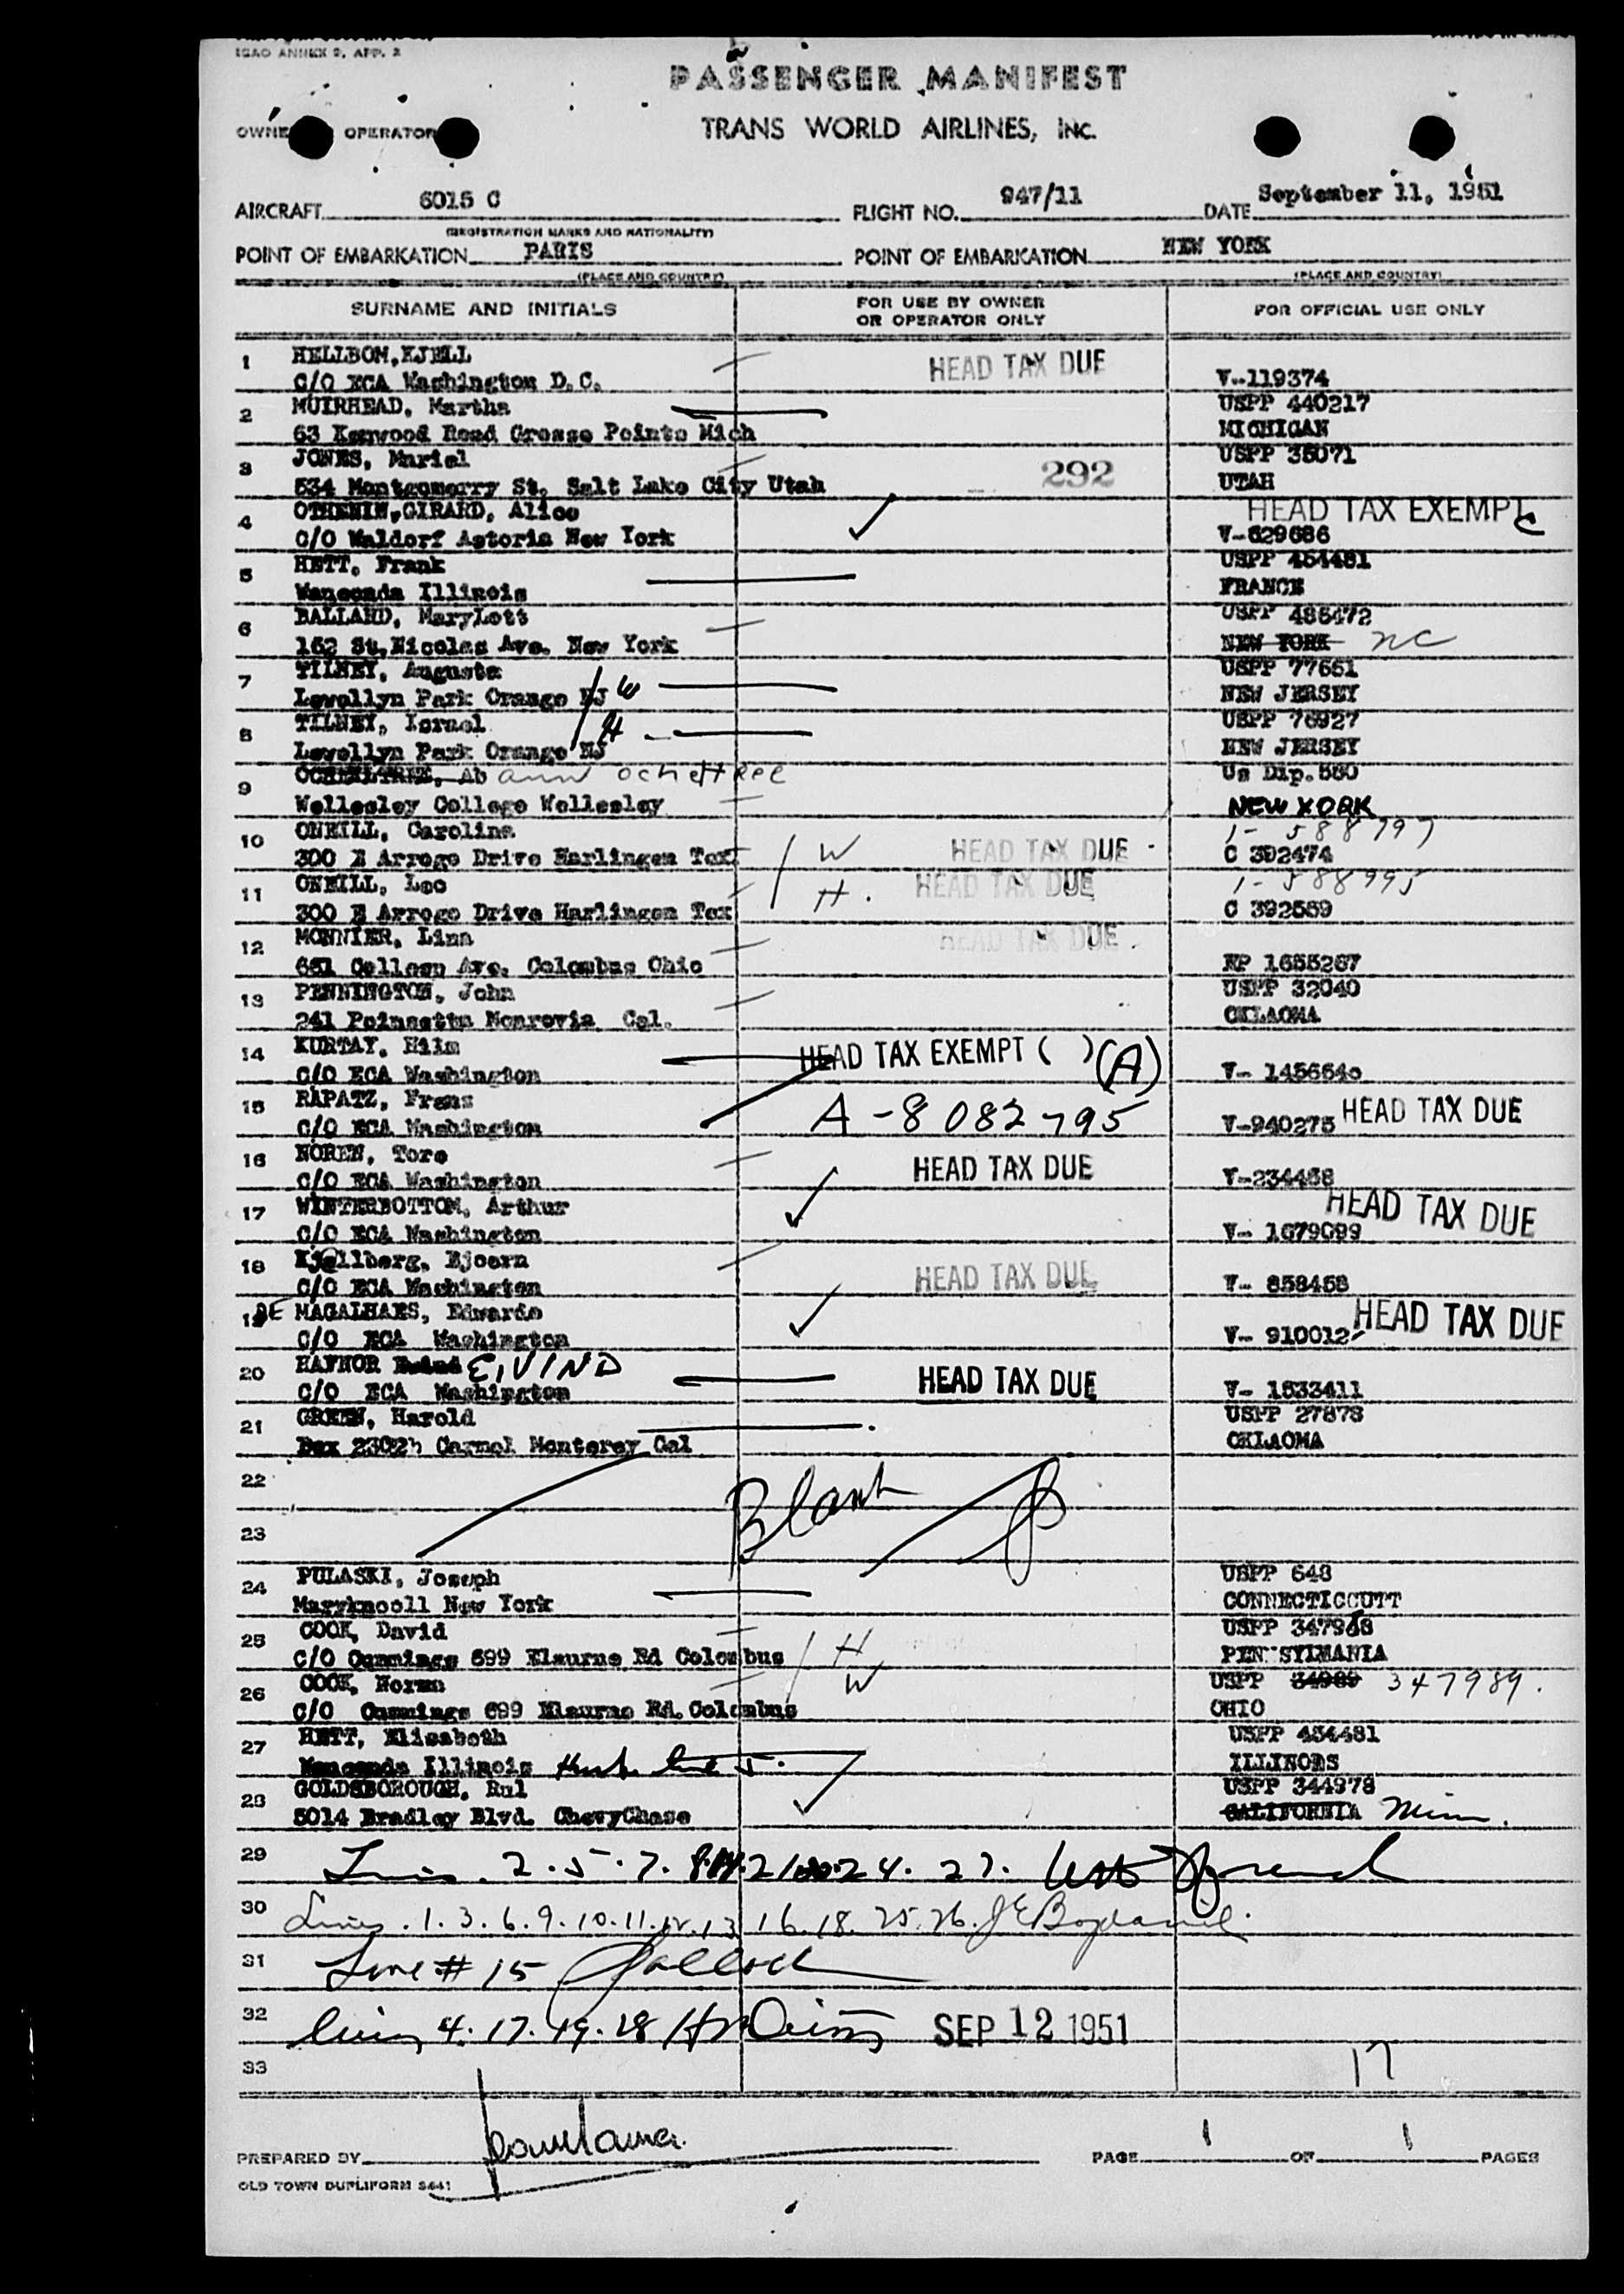 ICAO ANNEX 9, APP. 2
PASSENGER MANIFEST
OWNER OPERATOR
TRANS WORLD AIRLINES, INC.
AIRCRAFT 6015 C FLIGHT NO. 947/11 DATE September 11, 1951
(REGISTRATION MARKS AND NATIONALITY)
POINT OF EMBARKATION PARIS POINT OF EMBARKATION NEW YORK
(PLACE AND COUNTRY) (PLACE AND COUNTRY)
SURNAME AND INITIALS FOR USE BY OWNER OR OPERATOR ONLY FOR OFFICIAL USE ONLY
1 HELLBOM, KJELL HEAD TAX DUE
C/O ECA Washington D.C. V-119374
2 MUIRHEAD, Martha USPP 440217
63 Kenwood Road Grosse Pointe Mich MICHIGAN
3 JONES, Muriel USPP 35071
534 Montgomerry St. Salt Lake City Utah 292 UTAH
4 OTHENIN,GIRARD, Alice HEAD TAX EXEMPT C
C/O Waldorf Astoria New York V-629686
5 HETT, Frank USPP 454481
Wanconda Illinois FRANCE
6 BALLARD, MaryLott USPP 486472
162 St.Nicolas Ave. New York NEW YORK NC
7 TILNEY, Augusta USPP 77651
Lewellyn Park Orange NJ W NEW JERSEY
8 TILNEY, Israel H USPP 76927
Lewellyn Park Orange NJ NEW JERSEY
9 OCHELTREE, Ab ann ocheltree Us Dip.580
Wellesley College Wellesley NEW YORK
10 ONEILL, Caroline 1-588797
300 E Arroge Drive Harlingen Tex W HEAD TAX DUE C 392474
11 ONEILL, Leo H. HEAD TAX DUE 1-588995
300 E Arroge Drive Harlingen Tex C 392559
12 MONNIER, Lina HEAD TAX DUE
681 Colleen Ave. Colombus Ohio RP 1655267
13 PENNINGTON, John USPP 32040
241 Poinsettn Monrovia Cal. OKLAOMA
14 KURTAY, Hilm HEAD TAX EXEMPT ( ) (A)
C/O ECA Washington V- 145664o
15 RAPATZ, Franz A-8082795 HEAD TAX DUE
C/O ECA Washington V-940275
16 NOREN, Tore HEAD TAX DUE
C/O ECA Washington V-234458
17 WINTERBOTTOM, Arthur HEAD TAX DUE
C/O ECA Washington V- 1679099
18 Kjellberg, Bjoern HEAD TAX DUE
C/O ECA Washington V- 858458
19 DE MAGALHAES, Eduardo HEAD TAX DUE
C/O ECA Washington V- 910012
20 HAFNOR EIVIND HEAD TAX DUE
C/O ECA Washington V- 1533411
21 GREEN, Harold USPP 27878
Box 2302h Carmel Monterey Cal OKLAOMA
22
Blank
23
24 PULASKI, Joseph USPP 648
Maryknooll New York CONNECTICCUTT
25 COOK, David USPP 347988
C/O Cummings 699 Elaurne Rd Colombus H PENNSYLMANIA
26 COOK, Norma W USPP 34989 347989.
C/O Cummings 699 Elaurne Rd. Colombus OHIO
27 HETT, Elisabeth USPP 454481
Wanconda Illinois Husb. line 5. ILLINOES
28 GOLDSBOROUGH, Rul USPP 344978
5014 Bradley Blvd. ChevyChase CALIFORNIA Minn.
29 Lines 2.5.7.8.14.21.20.24.27.
30 Lines .1.3.6.9.10.11.12.13 16.18.25.26.
31 Line # 15
32 lines 4.17.19.28 SEP 12 1951
33 17
PREPARED BY PAGE 1 OF 1 PAGES
OLD TOWN DUPLIFORM